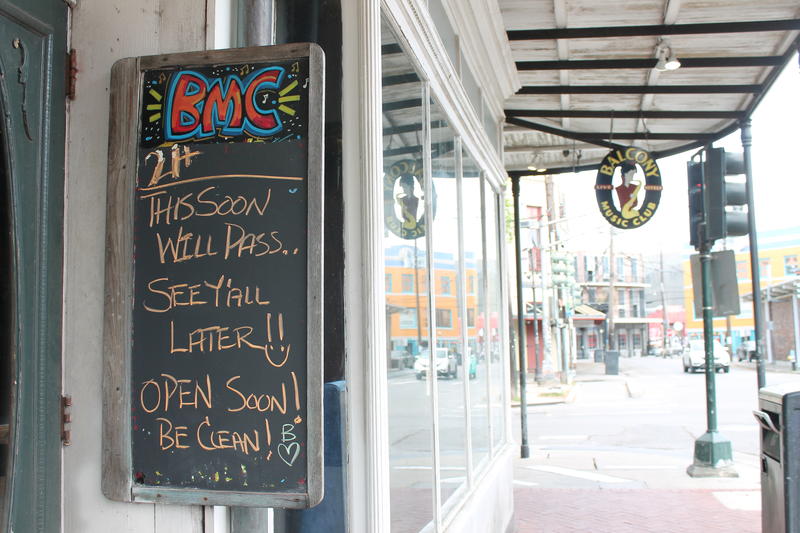 BMC
21+
THIS SOON
WILL PASS..
SEE Y'ALL
LATER!!
OPEN SOON!
BE CLEAN!
B
BALCONY
LIVE
MUSIC CLUB